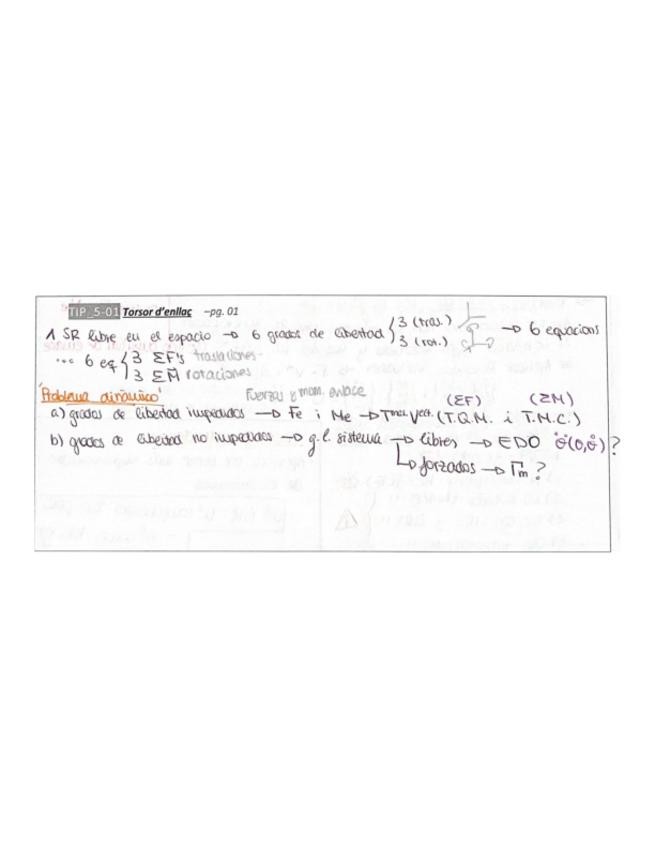 TiP_5-01 Torsor d'enllaç –pg. 01
1 SR libre en el espacio → 6 grados de libertad { 3 (tras.) 3 (rot.) → 6 equacions
... 6 eq { 3 ΣF's traslaciones
3 ΣM̄ rotaciones
'Problema dinámico' Fuerzas y mom. enlace (ΣF) (ΣM)
a) grados de libertad impedidos → Fe i Me → T Vect. (T.Q.M. i T.M.C.)
b) grados de libertad no impedidos → g.l. sistema → libres → EDO θ̈(θ,θ̇)?
→ forzados → Γm?